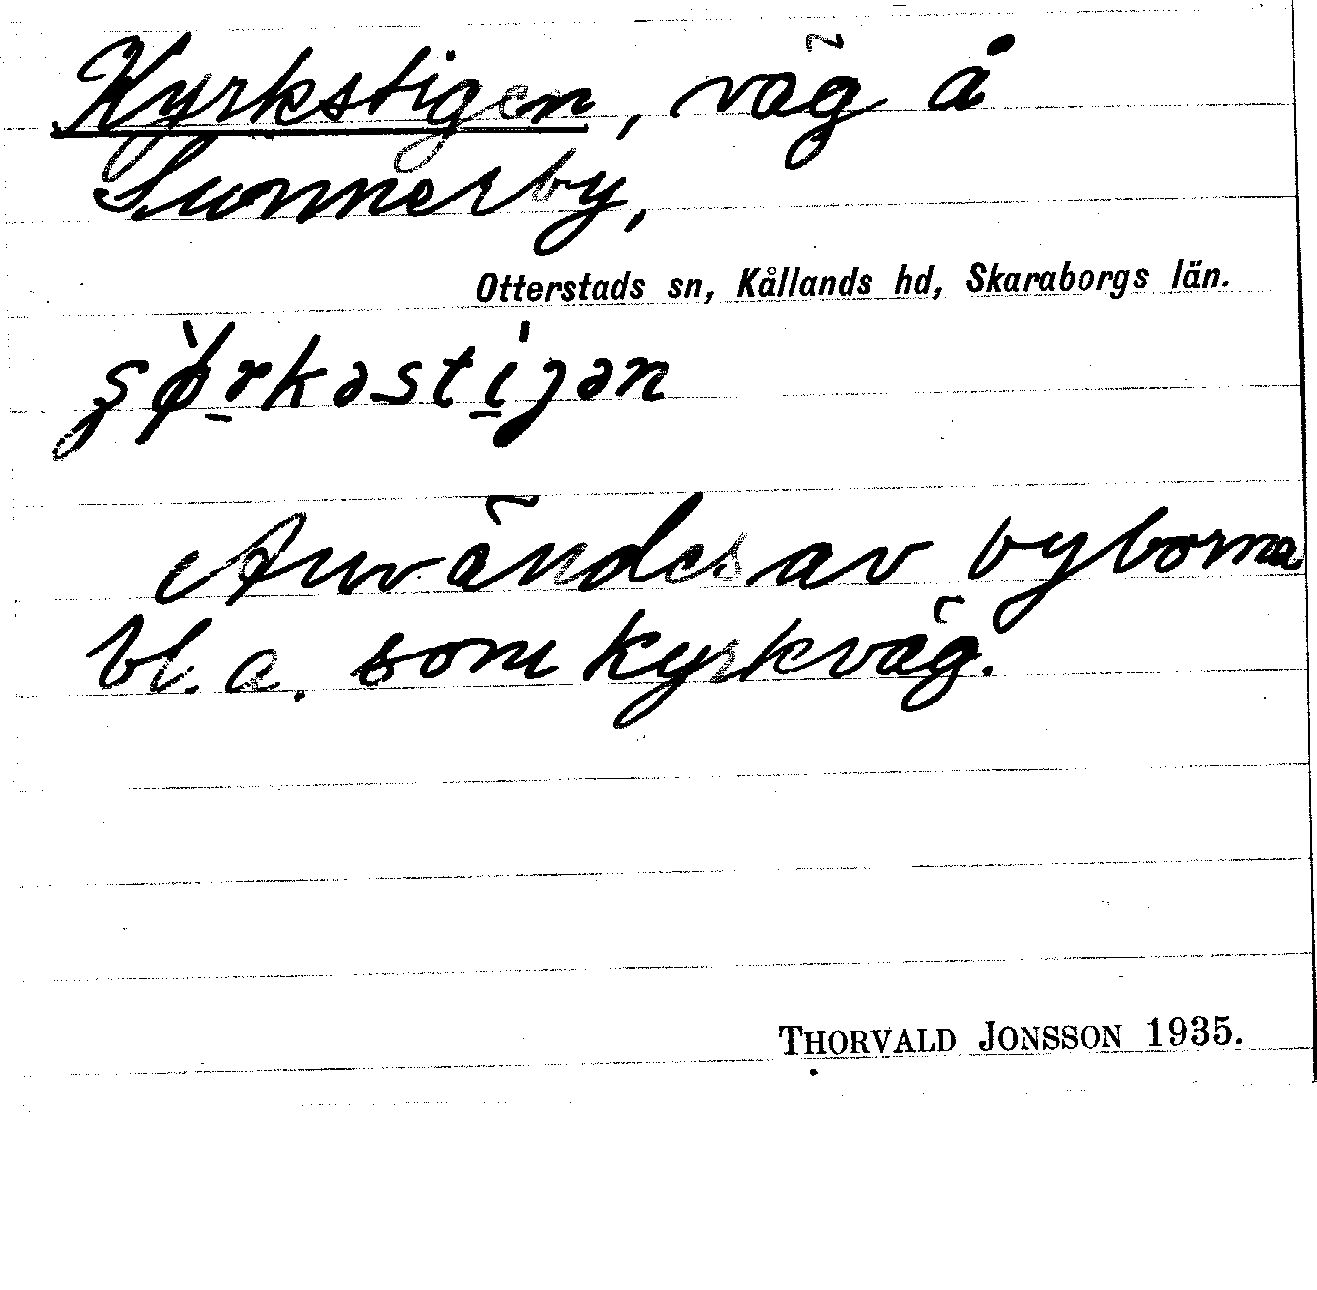 Kyrkstigen, väg å
Sunnerby,
Otterstads sn, Kållands hd, Skaraborgs län.
Användes av byborna
bl. a. som kyrkväg.
THORVALD JONSSON 1935.